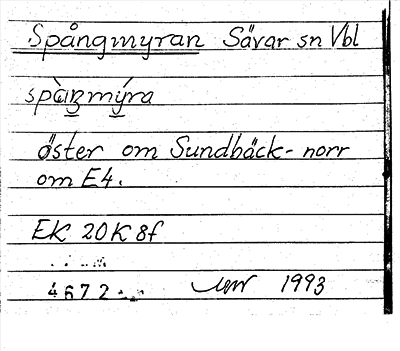 Spångmyran Sävar sn Vbl
öster om Sundbäck- norr
om E4.
EK 20K8f
4672
1993